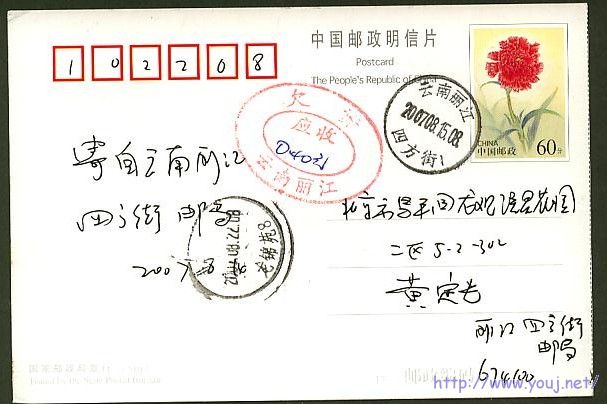 中国邮政明信片
Postcard
The People's Republic of China
102208
云南丽江
2007.08.15.08
四方街
CHINA
中国邮政
60分
欠
应收
0.40元
云南丽江
寄自云南丽江
四方街邮局
2007.8.
北京市昌平回龙观
二区5-2-302
黄定
丽江四方街
邮局
674100
国家邮政局发行
Issued by the State Postal Bureau
邮政编码
http://www.youj.net/